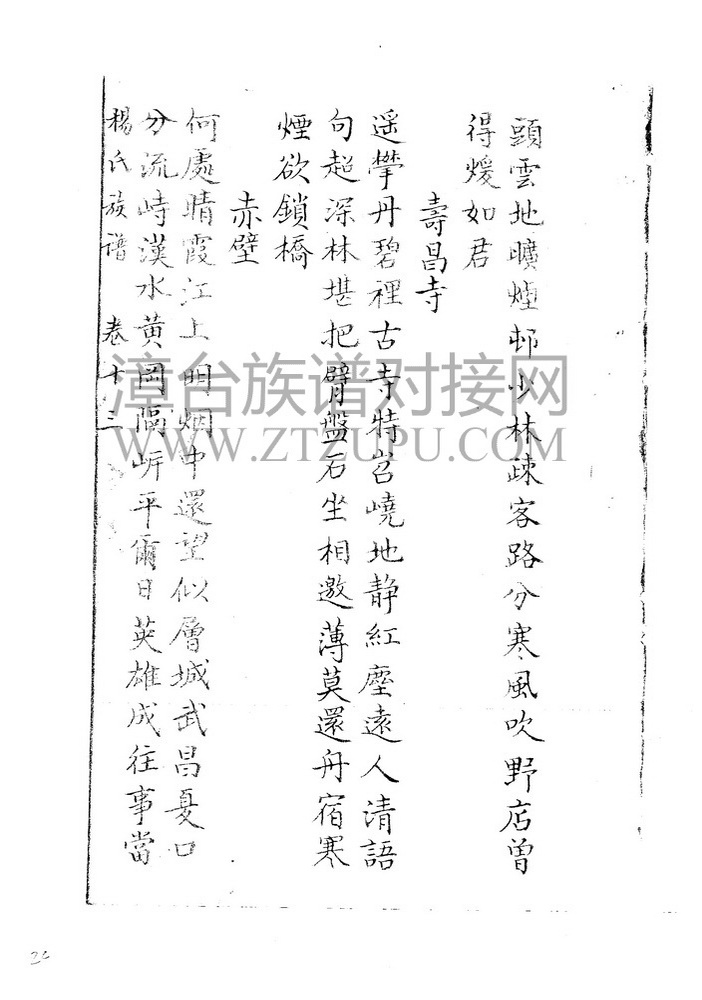 頭雲地曠煙邨少林疎客路分寒風吹野店曾
得煖如君
壽昌寺
遥攀丹碧裡古寺特岧嶢地静紅塵遠人清語
句超深林堪把臂盤石坐相邀薄莫還舟宿寒
煙欲鎖橋
赤壁
何處晴霞江上明烟中還望似層城武昌夏口
分流峙漢水黄岡隔岍平爾日英雄成往事當
楊氏族谱 卷十三
漳台族谱对接网
WWW.ZTZUPU.COM
26